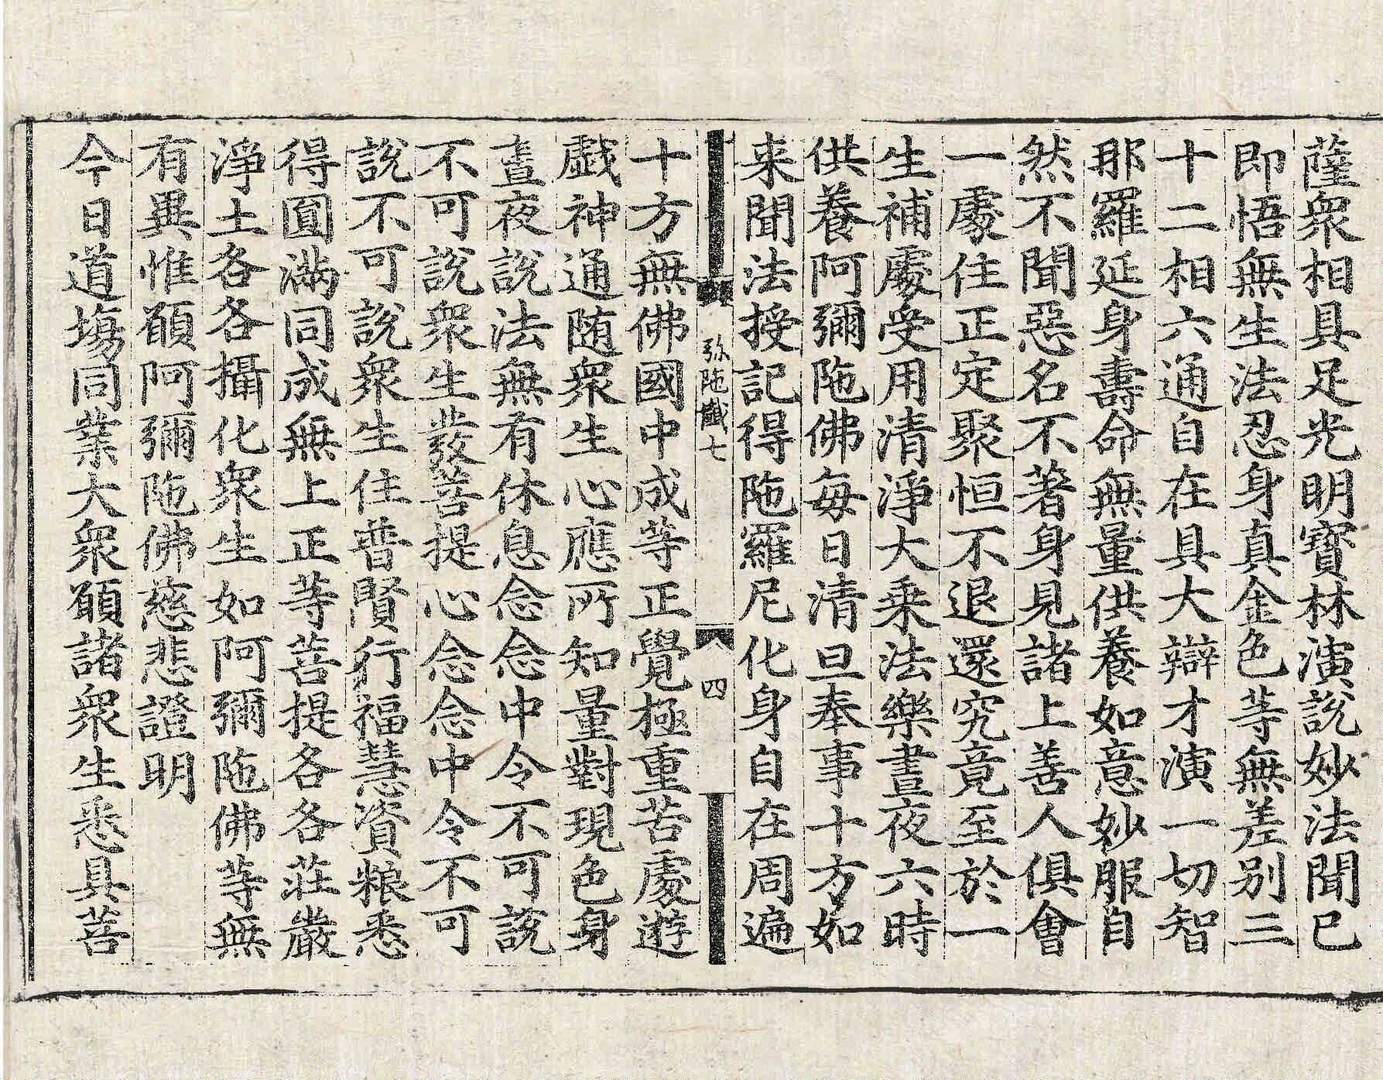 薩衆相具足光明寶林演說妙法聞已
即悟無生法忍身真金色等無差别三
十二相六通自在具大辯才演一切智
那羅延身壽命無量供養如意妙服自
然不聞惡名不著身見諸上善人俱會
一處住正定聚恒不退還究竟至於一
生補處受用清淨大乘法樂晝夜六時
供養阿彌陁佛每日清旦奉事十方如
来聞法授記得陁羅尼化身自在周遍
弥陁懺七
四
十方無佛國中成等正覺極重苦處遊
戯神通随衆生心應所知量對現色身
晝夜說法無有休息念念中令不可說
不可說衆生發菩提心念念中令不可
說不可說衆生住普賢行福慧資粮悉
得圎滿同成無上正等菩提各各莊嚴
淨土各各攝化衆生如阿彌陁佛等無
有異惟願阿彌陁佛慈悲證明
今日道塲同業大衆願諸衆生悉具菩